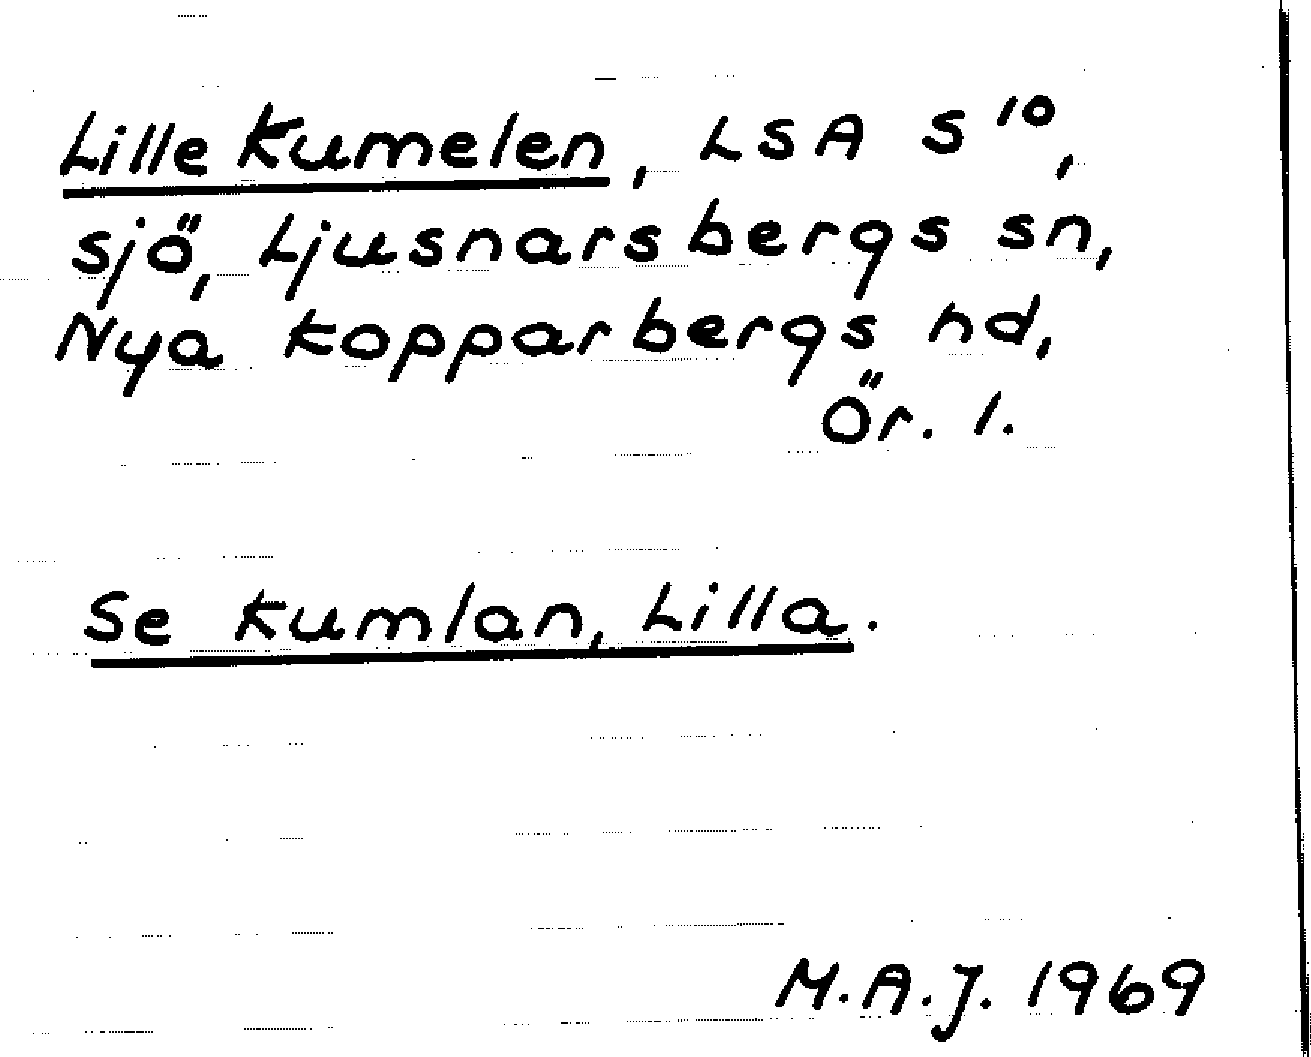 Lille Kumelen, LSA S¹⁰,
sjö, Ljusnarsbergs sn,
Nya Kopparbergs hd,
Ör. l.
Se Kumlan, Lilla.
M.A.J. 1969